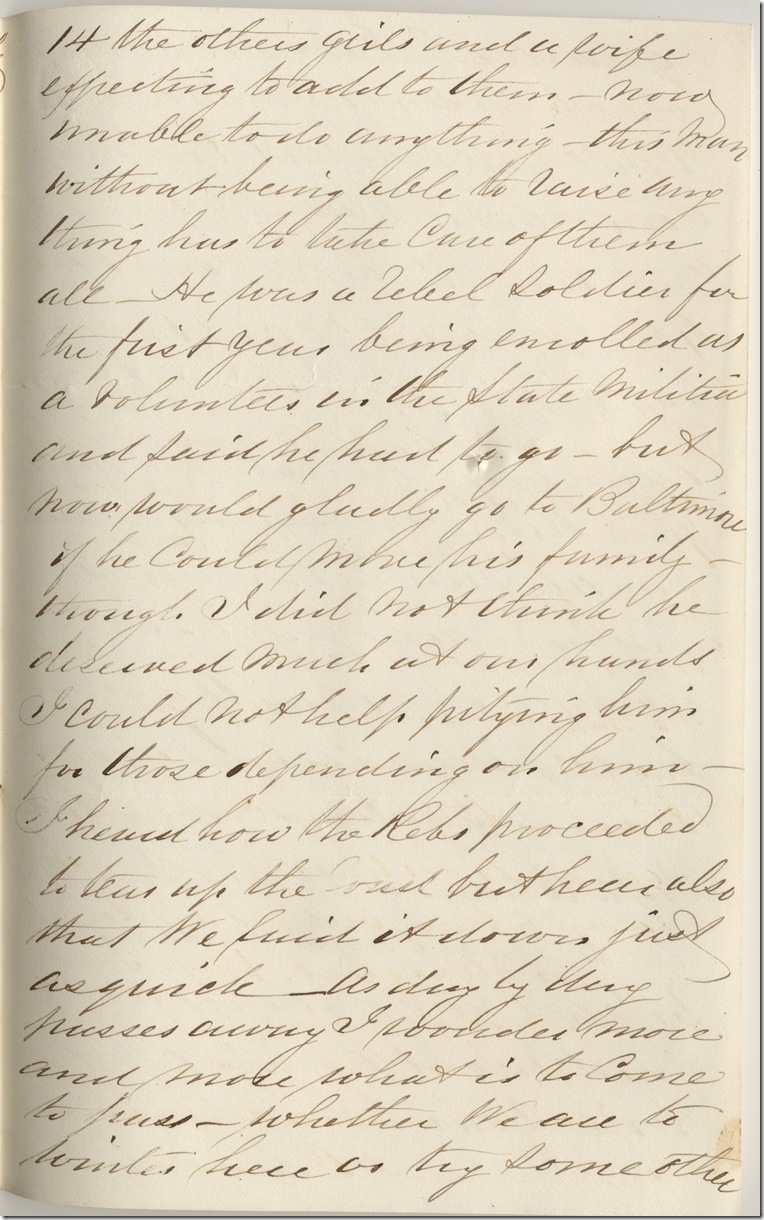 14 the others girls and a wife
expecting to add to them – now
unable to do anything – this man
without being able to raise any
thing has to take Care of them
all – He was a rebel soldier for
the first year being enrolled as
a volunteer in the State Militia
and said he had to go – but
now would gladly go to Baltimore
if he Could move his family –
though I did not think he
deserved much at our hands
I could not help pitying him
for those depending on him –
I heard how the Rebs proceeded
to tear up the road but hear also
that We laid it down just
as quick – As day by day
passes away I wonder more
and more what is to Come
to pass – whether We are to
winter here or try some other